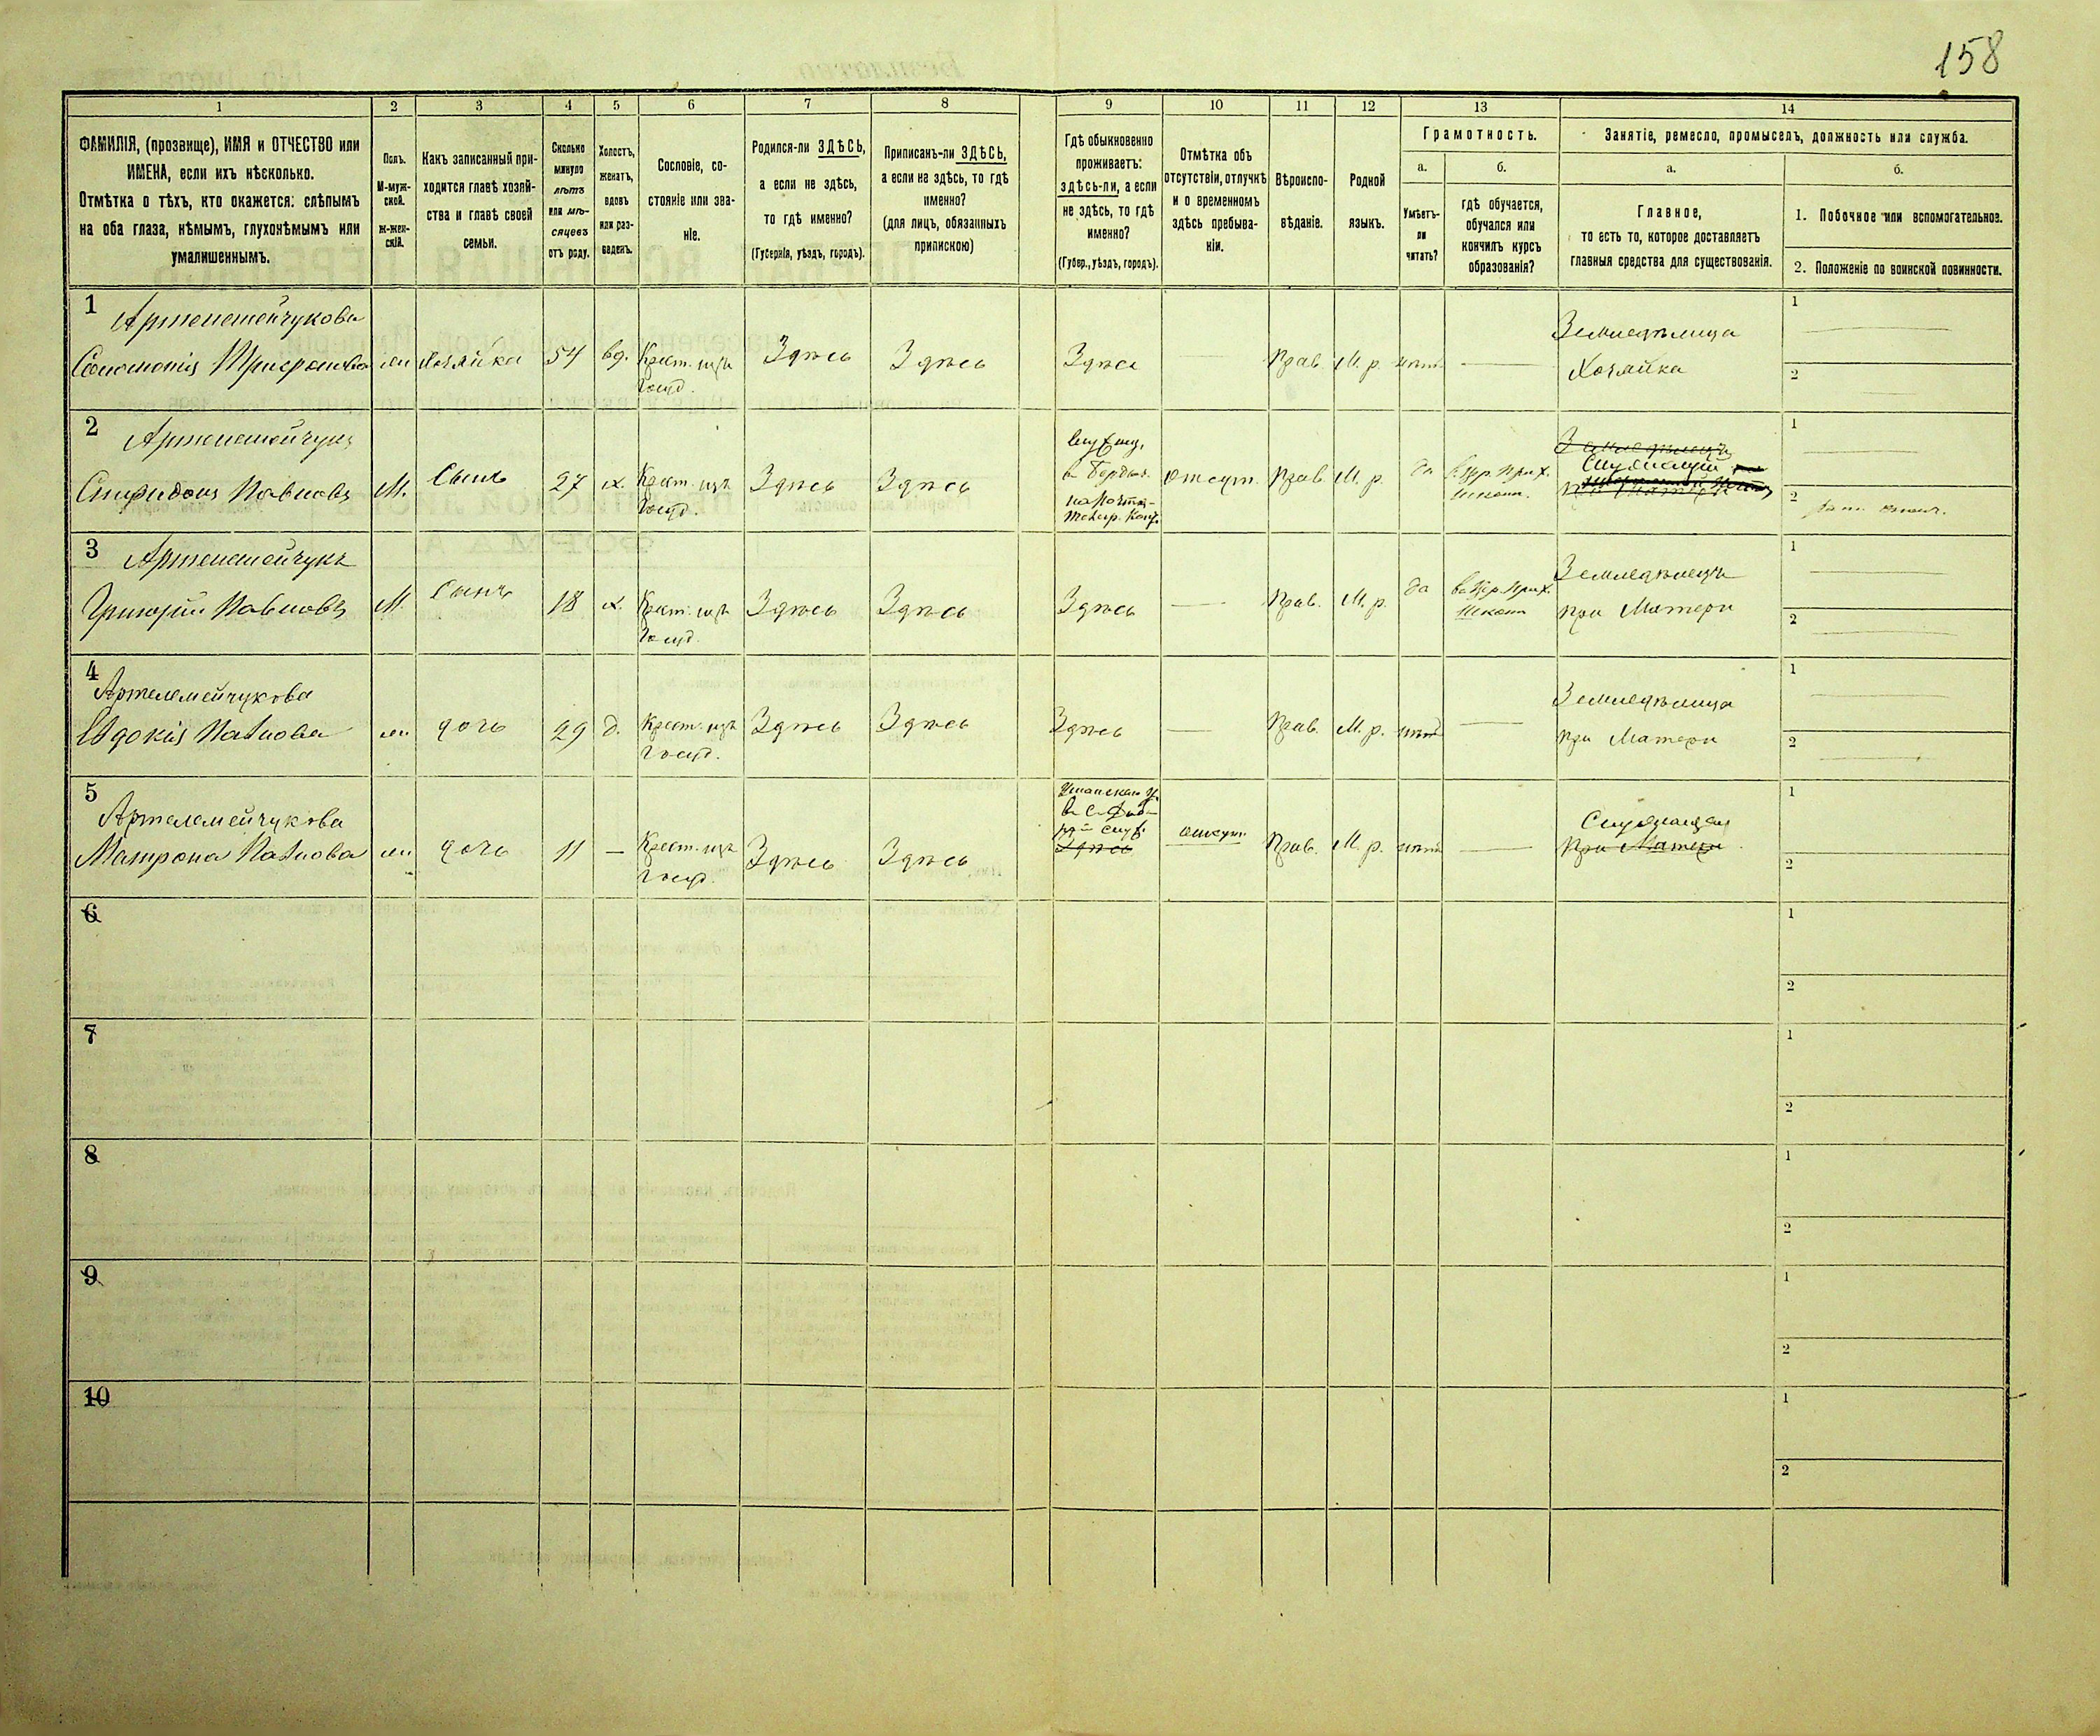 158
1 2 3 4 5 6 7 8 9 10 11 12 13 14
ФАМИЛІЯ, (прозвище), ИМЯ и ОТЧЕСТВО или
ИМЕНА, если ихъ нѣсколько.
Отмѣтка о тѣхъ, кто окажется: слѣпымъ
на оба глаза, нѣмымъ, глухонѣмымъ или
умалишеннымъ.
Полъ.
М-муж-
ской.
ж-жен-
скій.
Какъ записанный при-
ходится главѣ хозяй-
ства и главѣ своей
семьи.
Сколько
минуло
лѣтъ
или мѣ-
сяцевъ
отъ роду.
Холостъ,
женатъ,
вдовъ
или раз-
веденъ.
Сословіе, со-
стояніе или зва-
ніе.
Родился-ли ЗДѢСЬ,
а если не здѣсь,
то гдѣ именно?
(Губернія, уѣздъ, городъ).
Приписанъ-ли ЗДѢСЬ,
а если не здѣсь, то гдѣ
именно?
(для лицъ, обязанныхъ
припискою)
Гдѣ обыкновенно
проживаетъ:
здѣсь-ли, а если
не здѣсь, то гдѣ
именно?
(Губер., уѣздъ, городъ).
Отмѣтка объ
отсутствіи, отлучкѣ
и о временномъ
здѣсь пребыва-
ніи.
Вѣроиспо-
вѣданіе.
Родной
языкъ.
Грамотность.
а.
Умѣетъ-
ли
читать?
б.
гдѣ обучается,
обучался или
кончилъ курсъ
образованія?
Занятіе, ремесло, промыселъ, должность или служба.
а.
Главное,
то есть то, которое доставляетъ
главныя средства для существованія.
б.
1. Побочное или вспомогательное.
2. Положеніе по воинской повинности.
1
Артелемейчукова
Соломонія Трифонова жн Хозяйка 54 вд. Крест. изъ Здѣсь Здѣсь Здѣсь Прав. М. р. нѣтъ
Госуд.
Земледѣлица
Хозяйка
1
2
2
Артелемейчукъ
Спиридонъ Павловъ М. Сынъ 27 х. Крест. изъ Здѣсь Здѣсь
Госуд.
на Почтов-
Телегр. Конт.
отсут. Прав. М. р. да в Цер. Прих.
Школѣ.
Земледѣлецъ
Служащій
при Матери
1
2
3
Артелемейчукъ
Григорій Павловъ М. Сынъ 18 х. Крест. изъ Здѣсь Здѣсь Здѣсь Прав. М. р. да в Цер. Прих.
Госуд. Школѣ
Земледѣлецъ
при Матери
1
2
4
Артелемейчукова
Евдокія Павлова жн дочь 29 д. Крест. изъ Здѣсь Здѣсь Здѣсь Прав. М. р. нѣтъ
Госуд.
Земледѣлица
при Матери
1
2
5
Артелемейчукова
Матрона Павлова жн дочь 11 Крест. изъ Здѣсь Здѣсь
Госуд.
Уманскаго у.
Здѣсь
отсут. Прав. М. р. нѣтъ
Служащая
При Матери
1
2
6
1
2
7
1
2
8
1
2
9
1
2
10
1
2